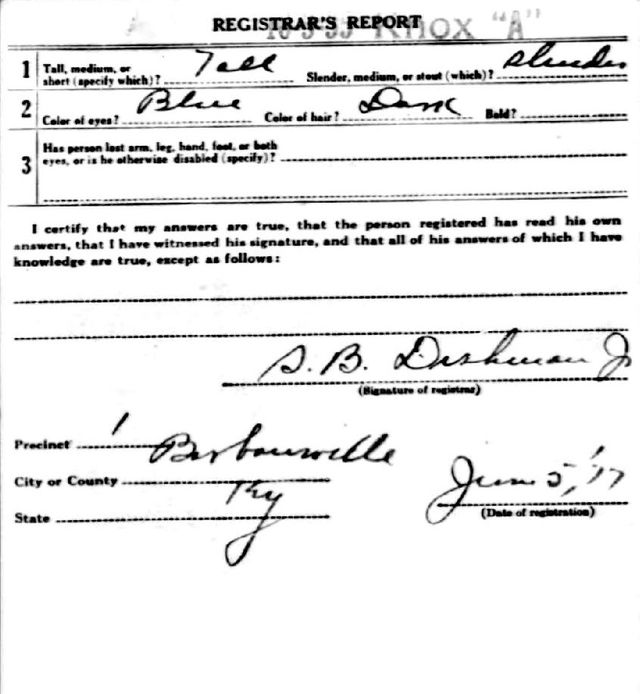 REGISTRAR'S REPORT
KNOX "A"
1 Tall, medium, or short (specify which)? Tall Slender, medium, or stout (which)? Slender
2 Color of eyes? Blue Color of hair? Dark Bald?
3 Has person lost arm, leg, hand, foot, or both
eyes, or is he otherwise disabled (specify)?
I certify that my answers are true, that the person registered has read his own
answers, that I have witnessed his signature, and that all of his answers of which I have
knowledge are true, except as follows:
S. B. Dishman Jr
(Signature of registrar)
Precinct 1
City or County Barbourville
State Ky
June 5, '17
(Date of registration)